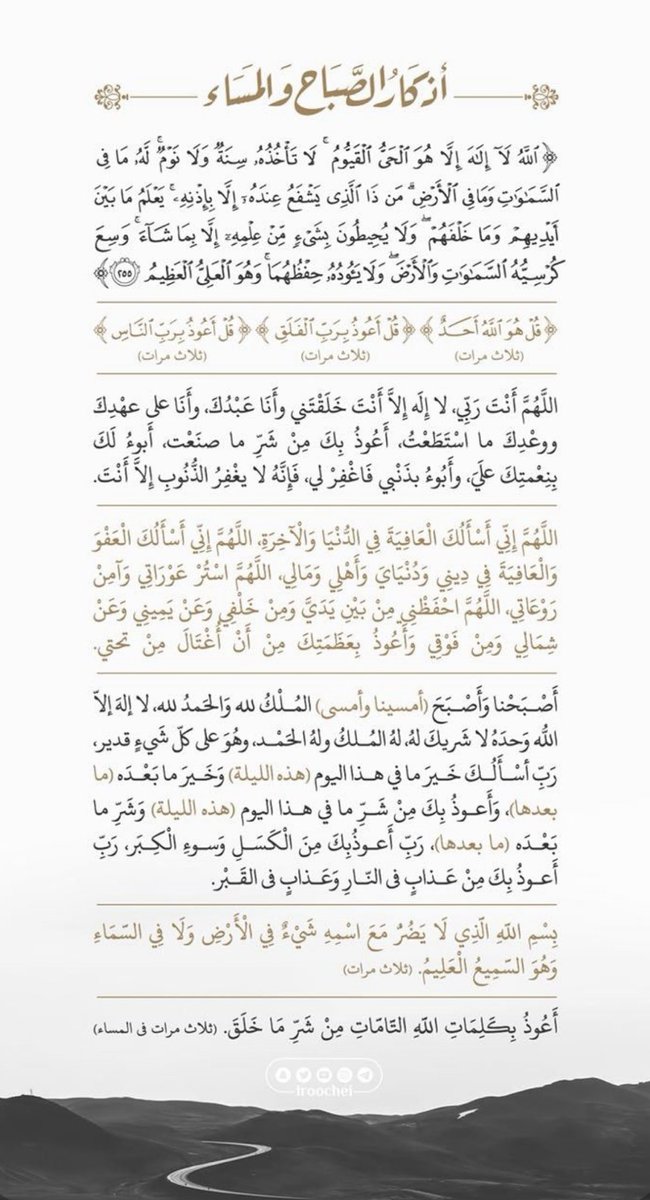 أذكار الصَّبَاح وَالمَسَاء
﴿ ٱللَّهُ لَآ إِلَٰهَ إِلَّا هُوَ ٱلْحَىُّ ٱلْقَيُّومُ ۚ لَا تَأْخُذُهُۥ سِنَةٌ وَلَا نَوْمٌ ۚ لَّهُۥ مَا فِى
ٱلسَّمَٰوَٰتِ وَمَا فِى ٱلْأَرْضِ ۗ مَن ذَا ٱلَّذِى يَشْفَعُ عِندَهُۥٓ إِلَّا بِإِذْنِهِۦ ۚ يَعْلَمُ مَا بَيْنَ
أَيْدِيهِمْ وَمَا خَلْفَهُمْ ۖ وَلَا يُحِيطُونَ بِشَىْءٍ مِّنْ عِلْمِهِۦٓ إِلَّا بِمَا شَآءَ ۚ وَسِعَ
كُرْسِيُّهُ ٱلسَّمَٰوَٰتِ وَٱلْأَرْضَ ۖ وَلَا يَـُٔودُهُۥ حِفْظُهُمَا ۚ وَهُوَ ٱلْعَلِىُّ ٱلْعَظِيمُ ٢٥٥ ﴾
﴿ قُلْ هُوَ اللَّهُ أَحَدٌ ﴾ ﴿ قُلْ أَعُوذُ بِرَبِّ الْفَلَقِ ﴾ ﴿ قُلْ أَعُوذُ بِرَبِّ النَّاسِ ﴾
(ثلاث مرات) (ثلاث مرات) (ثلاث مرات)
اللَّهُمَّ أَنْتَ رَبِّي، لا إِلَه إِلاَّ أَنْتَ خَلَقْتَني وأَنَا عَبْدُكَ، وأَنَا على عهْدِكَ
ووعْدِكَ ما اسْتَطَعْتُ، أَعُوذُ بِكَ مِنْ شَرِّ ما صنَعْت، أَبوءُ لَكَ
بِنِعْمتِكَ علَيَ، وأَبُوءُ بذَنْبي فَاغْفِرْ لي، فَإِنَّهُ لا يغْفِرُ الذُّنُوبِ إِلاَّ أَنْتَ.
اللَّهُمَّ إِنِّي أَسْأَلُكَ الْعَافِيَةَ فِي الدُّنْيَا وَالْآخِرَةِ، اللَّهُمَّ إِنِّي أَسْأَلُكَ الْعَفْوَ
وَالْعَافِيَةَ فِي دِينِي وَدُنْيَايَ وَأَهْلِي وَمَالِي، اللَّهُمَّ اسْتُرْ عَوْرَاتِي وَآمِنْ
رَوْعَاتِي، اللَّهُمَّ احْفَظْنِي مِنْ بَيْنِ يَدَيَّ وَمِنْ خَلْفِي وَعَنْ يَمِينِي وَعَنْ
شِمَالِي وَمِنْ فَوْقِي وَأَعُوذُ بِعَظَمَتِكَ مِنْ أَنْ أُغْتَالَ مِنْ تحتي.
أَصْبَحْنا وَأَصْبَحَ (أمسينا وأمسى) المُلْكُ لله وَالحَمدُ لله، لا إلهَ إلاّ
اللّه وَحدَهُ لا شَريكَ لهُ، لهُ المُلكُ ولهُ الحَمْد، وهُوَ على كلّ شَيءٍ قدير،
رَبِّ أسْأَلُكَ خَيرَ ما في هذا اليوم (هذه الليلة) وَخَيرَ ما بَعْدَه (ما
بعدها)، وَأَعوذُ بِكَ مِنْ شَرِّ ما في هذا اليوم (هذه الليلة) وَشَرِّ ما
بَعْدَه (ما بعدها)، رَبِّ أَعوذُبِكَ مِنَ الْكَسَلِ وَسوءِ الْكِبَر، رَبِّ
أَعوذُ بِكَ مِنْ عَذابٍ في النّارِ وَعَذابٍ في القَبْر.
بِسْمِ اللَّهِ الَّذِي لَا يَضُرُّ مَعَ اسْمِهِ شَيْءٌ فِي الْأَرْضِ وَلَا فِي السَّمَاءِ
وَهُوَ السَّمِيعُ الْعَلِيمُ. (ثلاث مرات)
أَعُوذُ بِكَلِمَاتِ اللَّهِ التَّامَّاتِ مِنْ شَرِّ مَا خَلَقَ. (ثلاث مرات في المساء)
iroochei